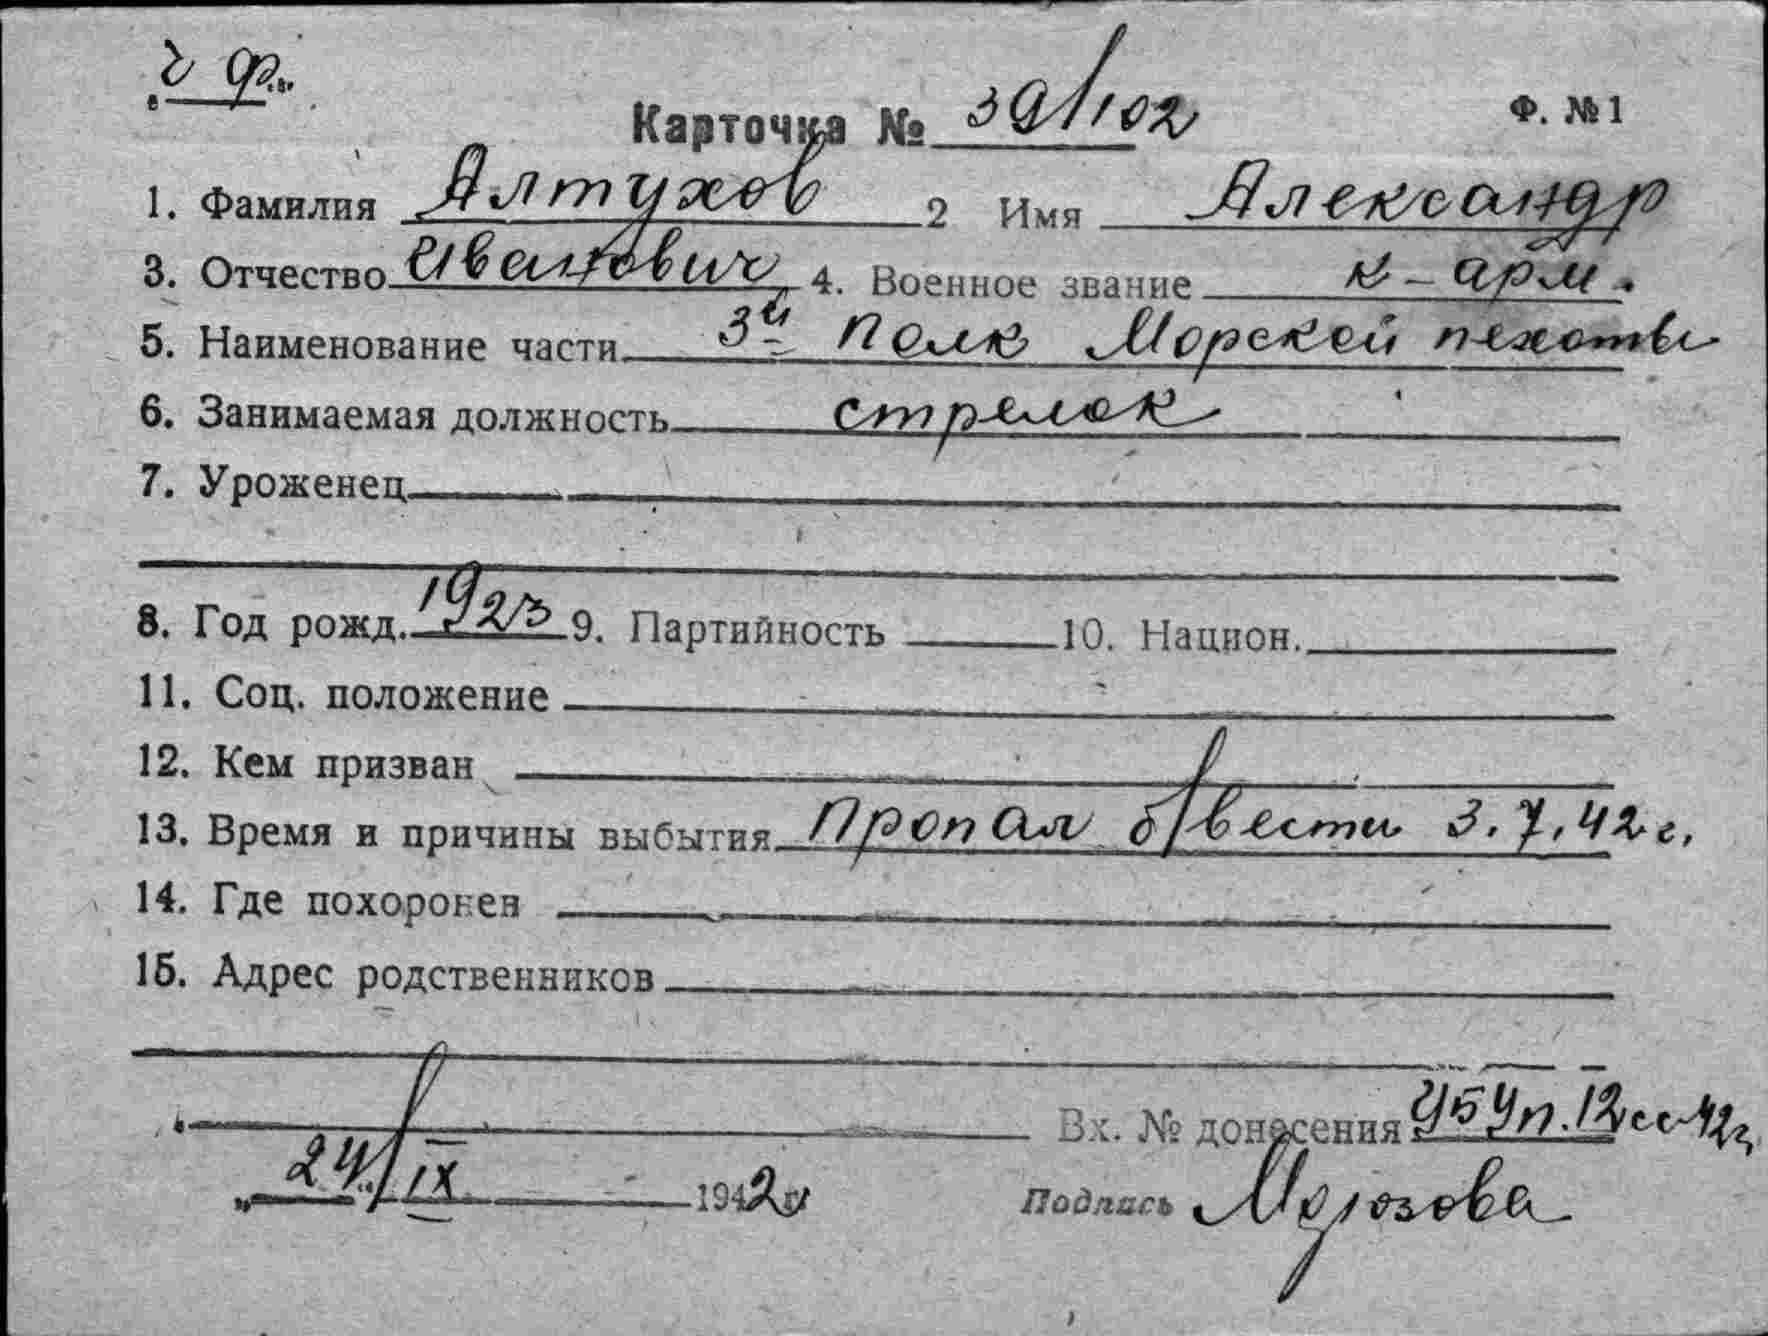 Карточка № 391/102 Ф. №1
1. Фамилия Алтухов 2 Имя Александр
3. Отчество Иванович 4. Военное звание к-арм.
5. Наименование части 3й Полк Морской пехоты
6. Занимаемая должность стрелок
7. Уроженец
8. Год рожд. 1923 9. Партийность 10. Национ.
11. Соц. положение
12. Кем призван
13. Время и причины выбытия Пропал б/вести 3.7.42г.
14. Где похоронен
15. Адрес родственников
Вх. № донесения
24/IX 1942г Подпись Морозова